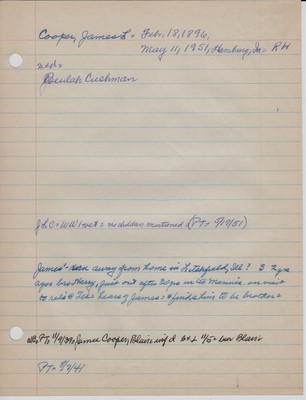 Cooper, James L = Feb. 18, 1896,
May 11, 1951, Hamburg, Ia = RH
md =
Beulah Cushman
J L C = WW I vet = no children mentioned (PT = 5/17/51)
James' - ran away from home in Litchfield, Ill? 3 2 yrs
ago brother, Harry, finds out after 20 yrs in the Marines, on visit
to rels @ Tek. hears of James & finds him to be brother
PT, 11/9/39, James Cooper, Blair = inf'd 11/5 = near Blair
PT = 8/7/41